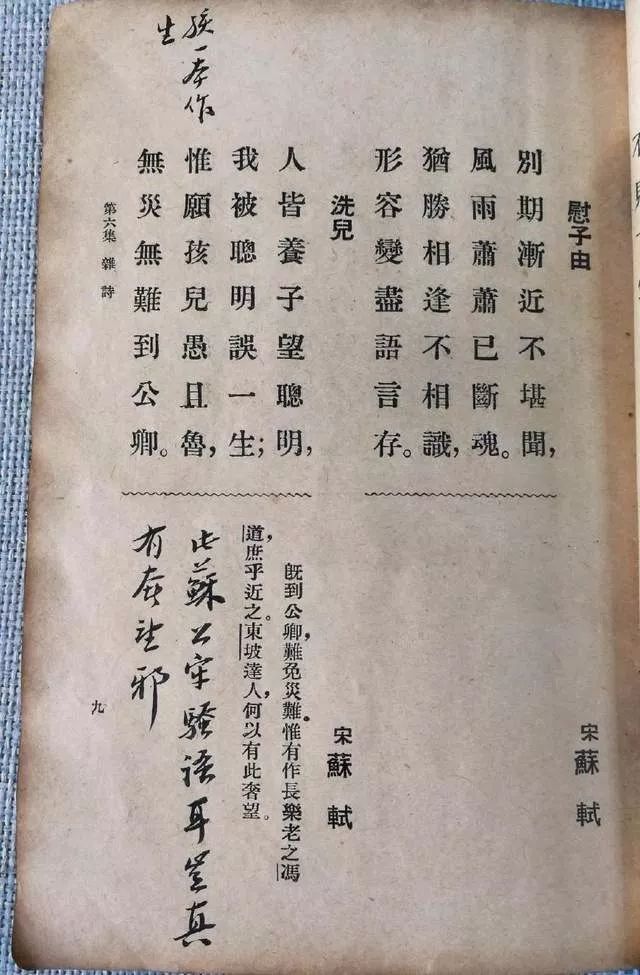 慰子由
宋蘇軾
別期漸近不堪聞，
風雨蕭蕭已斷魂。
猶勝相逢不相識，
形容變盡語言存。
洗兒
宋蘇軾
人皆養子望聰明，
我被聰明誤一生；
惟願孩兒愚且魯，
無災無難到公卿。
既到公卿，難免災難。惟有作長樂老之馮
道，庶乎近之。東坡達人，何以有此奢望。
孩一本作
生
此蘇公牢騷語耳豈真
有奢望邪
第六集 雜詩
九